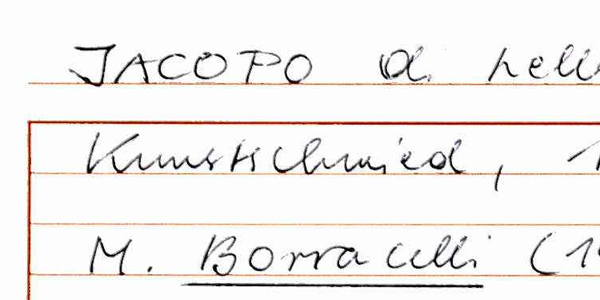 JACOPO d.
Kunstschmied, 1
M. Borracelli (19